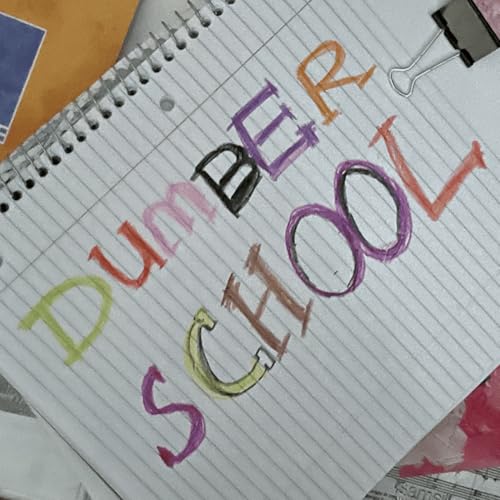 DUMBER
SCHOOL